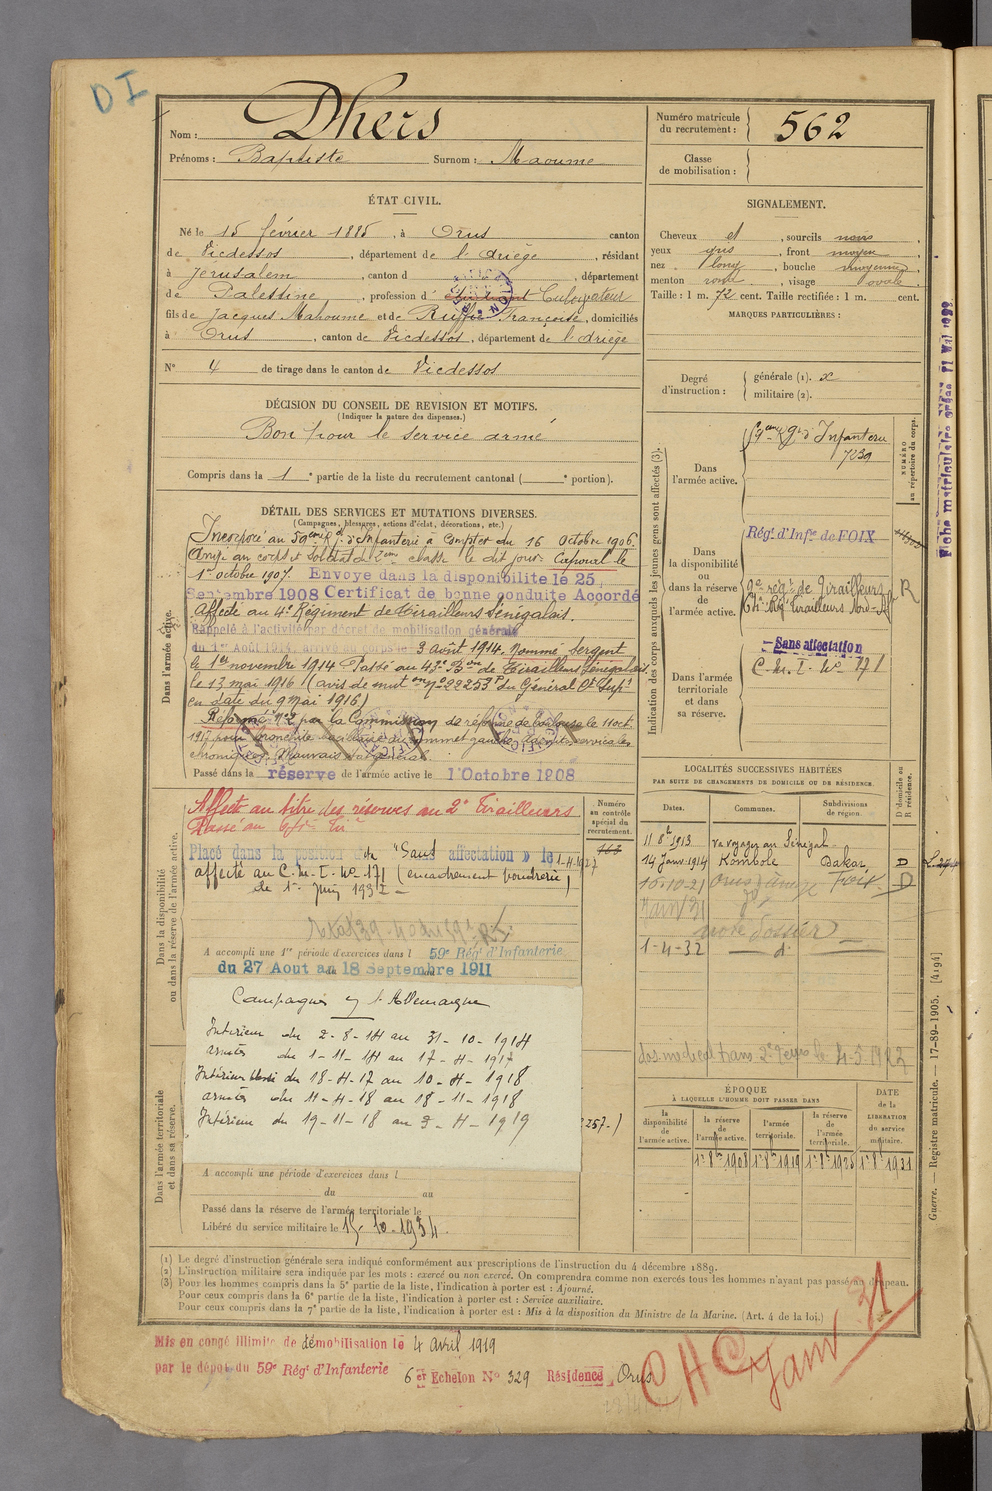 D I
Nom : Dhers
Prénoms : Baptiste Surnom : Maoume
Numéro matricule du recrutement : 562
Classe de mobilisation :
ÉTAT CIVIL.
Né le 15 février 1885, à Orus canton
de Vicdessos, département de l'Ariège, résidant
à Jérusalem, canton d , département
de Palestine, profession d'étudiant Cultivateur
fils de Jacques Mahoume et de Ruffié Françoise, domiciliés
à Orus, canton de Vicdessos, département de l'Ariège
N° 4 de tirage dans le canton de Vicdessos
SIGNALEMENT.
Cheveux et , sourcils noirs,
yeux gris, front moyen,
nez long, bouche moyenne,
menton rond, visage ovale.
Taille : 1 m. 72 cent. Taille rectifiée : 1 m. cent.
MARQUES PARTICULIÈRES :
Degré d'instruction : générale (1). x
militaire (2).
DÉCISION DU CONSEIL DE REVISION ET MOTIFS.
(Indiquer la nature des dispenses.)
Bon pour le service armé
Compris dans la 1e partie de la liste du recrutement cantonal ( e portion).
DÉTAIL DES SERVICES ET MUTATIONS DIVERSES.
(Campagnes, blessures, actions d'éclat, décorations, etc.)
Dans l'armée active.
Incorporé au 59eme Rgt d'Infanterie à compter du 16 octobre 1906.
Arrivé au corps et soldat de 2eme classe le dit jour. Caporal le
1er octobre 1907. Envoyé dans la disponibilité le 25
Septembre 1908 Certificat de bonne conduite Accordé
Affecté au 4e Régiment de Tirailleurs Sénégalais.
Rappelé à l'activité par décret de mobilisation générale
du 1er Août 1914, arrivé au corps le 3 août 1914. Nommé sergent
le 1er novembre 1914 Passé au 43e Bon de Tirailleurs Sénégalais
le 13 mai 1916 (avis de mut on n° 22253 P du Général Ct Supr
en date du 9 Mai 1916)
Réformé n° 2 par la Commission de réforme de Toulouse le 11 oct
1917 pour bronchite bacillaire du sommet gauche
chronique. Mauvais état général.
Passé dans la réserve de l'armée active le 1 Octobre 1908
Dans la disponibilité ou dans la réserve de l'armée active.
Affecté au titre des réserves au 2e Tirailleurs
Passé au
Placé dans la position de "Sans affectation" le 1-4-1927
affecté au C.M.I. N° 171 (encadrement poudrerie)
le 1er Juin 1932
A accompli une 1re période d'exercices dans l 59e Régt d'Infanterie
du 27 Aout au 18 Septembre 1911
Campagnes c/ l'Allemagne
Intérieur du 2-8-14 au 31-10-1914
armées du 1-11-14 au 17-4-1917
Intérieur du 18-4-17 au 10-4-1918
armées du 11-4-18 au 18-11-1918
Intérieur du 19-11-18 au 3-4-1919
Dans l'armée territoriale et dans sa réserve.
A accompli une période d'exercices dans l
du au
Passé dans la réserve de l'armée territoriale le
Libéré du service militaire le 15-10-1934.
Numéro au contrôle spécial du recrutement.
Indication des corps auxquels les jeunes gens sont affectés (3).
NUMÉRO au répertoire du corps.
Dans l'armée active.
59eme Rgt d'Infanterie
7239
Dans la disponibilité ou dans la réserve de l'armée active.
Régt d'Infie de FOIX
2e régt de Tirailleurs
R
Dans l'armée territoriale et dans sa réserve.
Sans affectation
C.M.I. N° 171
LOCALITÉS SUCCESSIVES HABITÉES
PAR SUITE DE CHANGEMENTS DE DOMICILE OU DE RÉSIDENCE.
Dates. Communes. Subdivisions de région. D domicile ou R résidence.
11 8bre 1913 va voyager au Sénégal
14 Janv 1914 Kombole Dakar D
15-10-21 Orus Foix D
Janv 31
1-4-32 d°
ÉPOQUE
À LAQUELLE L'HOMME DOIT PASSER DANS
la disponibilité de l'armée active. la réserve de l'armée active. l'armée territoriale. la réserve de l'armée territoriale. DATE de la LIBÉRATION du service militaire.
1er 8bre 1908 1er 8bre 1919 1er 8bre 1925 1er 8bre 1931
Fiche matriculaire créée 21 Mai
Guerre. — Registre matricule. — 17-89-1905. [4194]
(1) Le degré d'instruction générale sera indiqué conformément aux prescriptions de l'instruction du 4 décembre 1889.
(2) L'instruction militaire sera indiquée par les mots : exercé ou non exercé. On comprendra comme non exercés tous les hommes n'ayant pas passé au drapeau.
(3) Pour les hommes compris dans la 5e partie de la liste, l'indication à porter est : Ajourné.
Pour ceux compris dans la 6e partie de la liste, l'indication à porter est : Service auxiliaire.
Pour ceux compris dans la 7e partie de la liste, l'indication à porter est : Mis à la disposition du Ministre de la Marine. (Art. 4 de la loi.)
Mis en congé illimité de démobilisation le 4 avril 1919
par le dépôt du 59e Régt d'Infanterie 6 er Echelon N° 329 Résidence Orus
CHC Janv 31